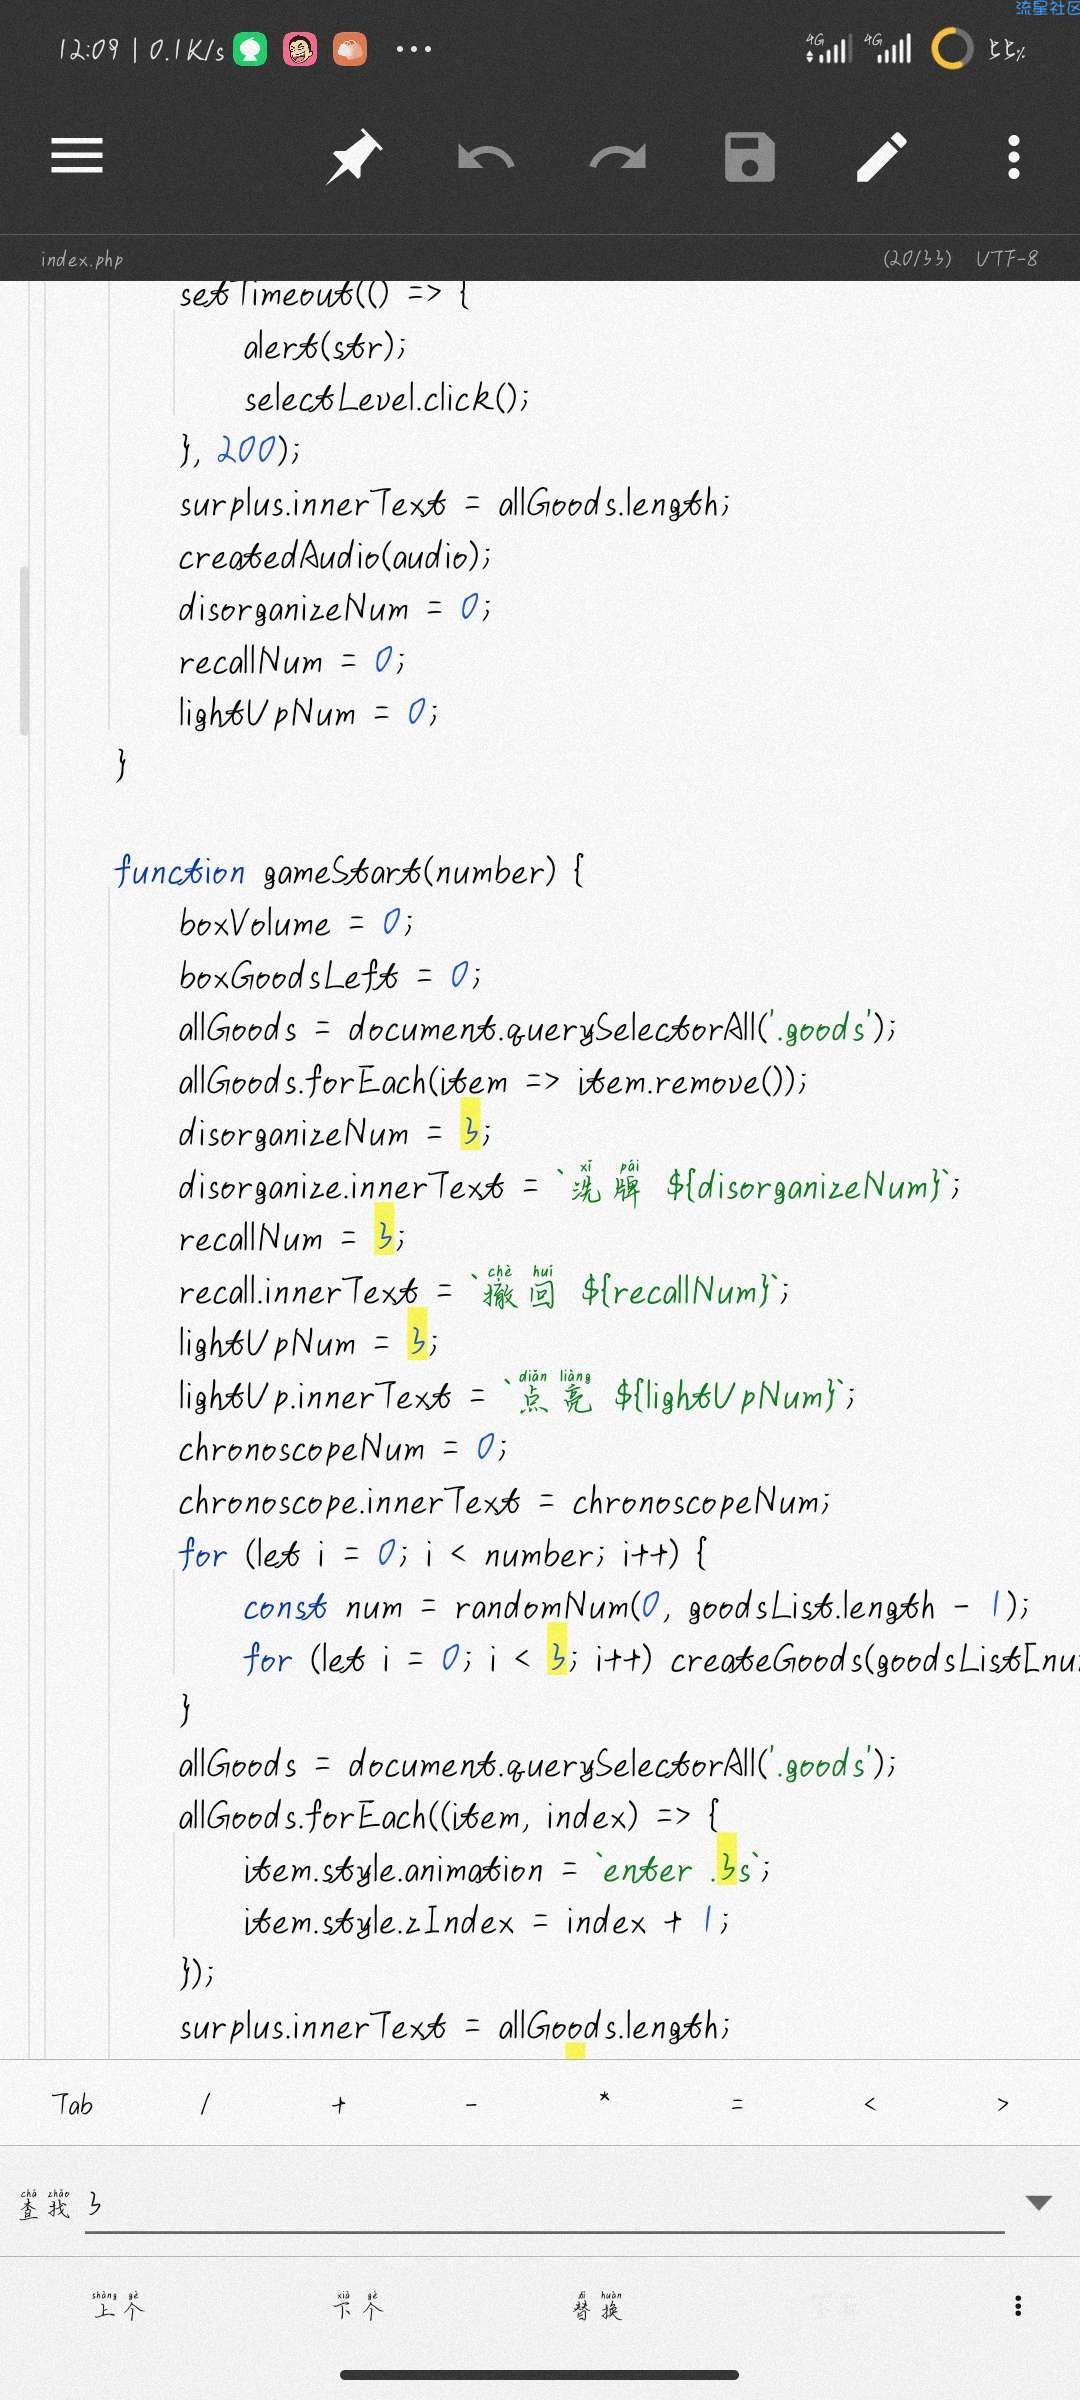 流星社区
12:09 | 0.1K/s 4G 4G 55%
index.php (20/33) UTF-8
setTimeout(() => {
alert(str);
selectLevel.click();
}, 200);
surplus.innerText = allGoods.length;
createdAudio(audio);
disorganizeNum = 0;
recallNum = 0;
lightUpNum = 0;
}
function gameStart(number) {
boxVolume = 0;
boxGoodsLeft = 0;
allGoods = document.querySelectorAll('.goods');
allGoods.forEach(item => item.remove());
disorganizeNum = 3;
xǐ pái
disorganize.innerText = `洗牌 ${disorganizeNum}`;
recallNum = 3;
chè huí
recall.innerText = `撤回 ${recallNum}`;
lightUpNum = 3;
diǎn liàng
lightUp.innerText = `点亮 ${lightUpNum}`;
chronoscopeNum = 0;
chronoscope.innerText = chronoscopeNum;
for (let i = 0; i < number; i++) {
const num = randomNum(0, goodsList.length - 1);
for (let i = 0; i < 3; i++) createGoods(goodsList[nu
}
allGoods = document.querySelectorAll('.goods');
allGoods.forEach((item, index) => {
item.style.animation = `enter .3s`;
item.style.zIndex = index + 1;
});
surplus.innerText = allGoods.length;
Tab / + - * = < >
chá zhǎo
查找 3
shàng gè xià gè tì huàn
上个 下个 替换